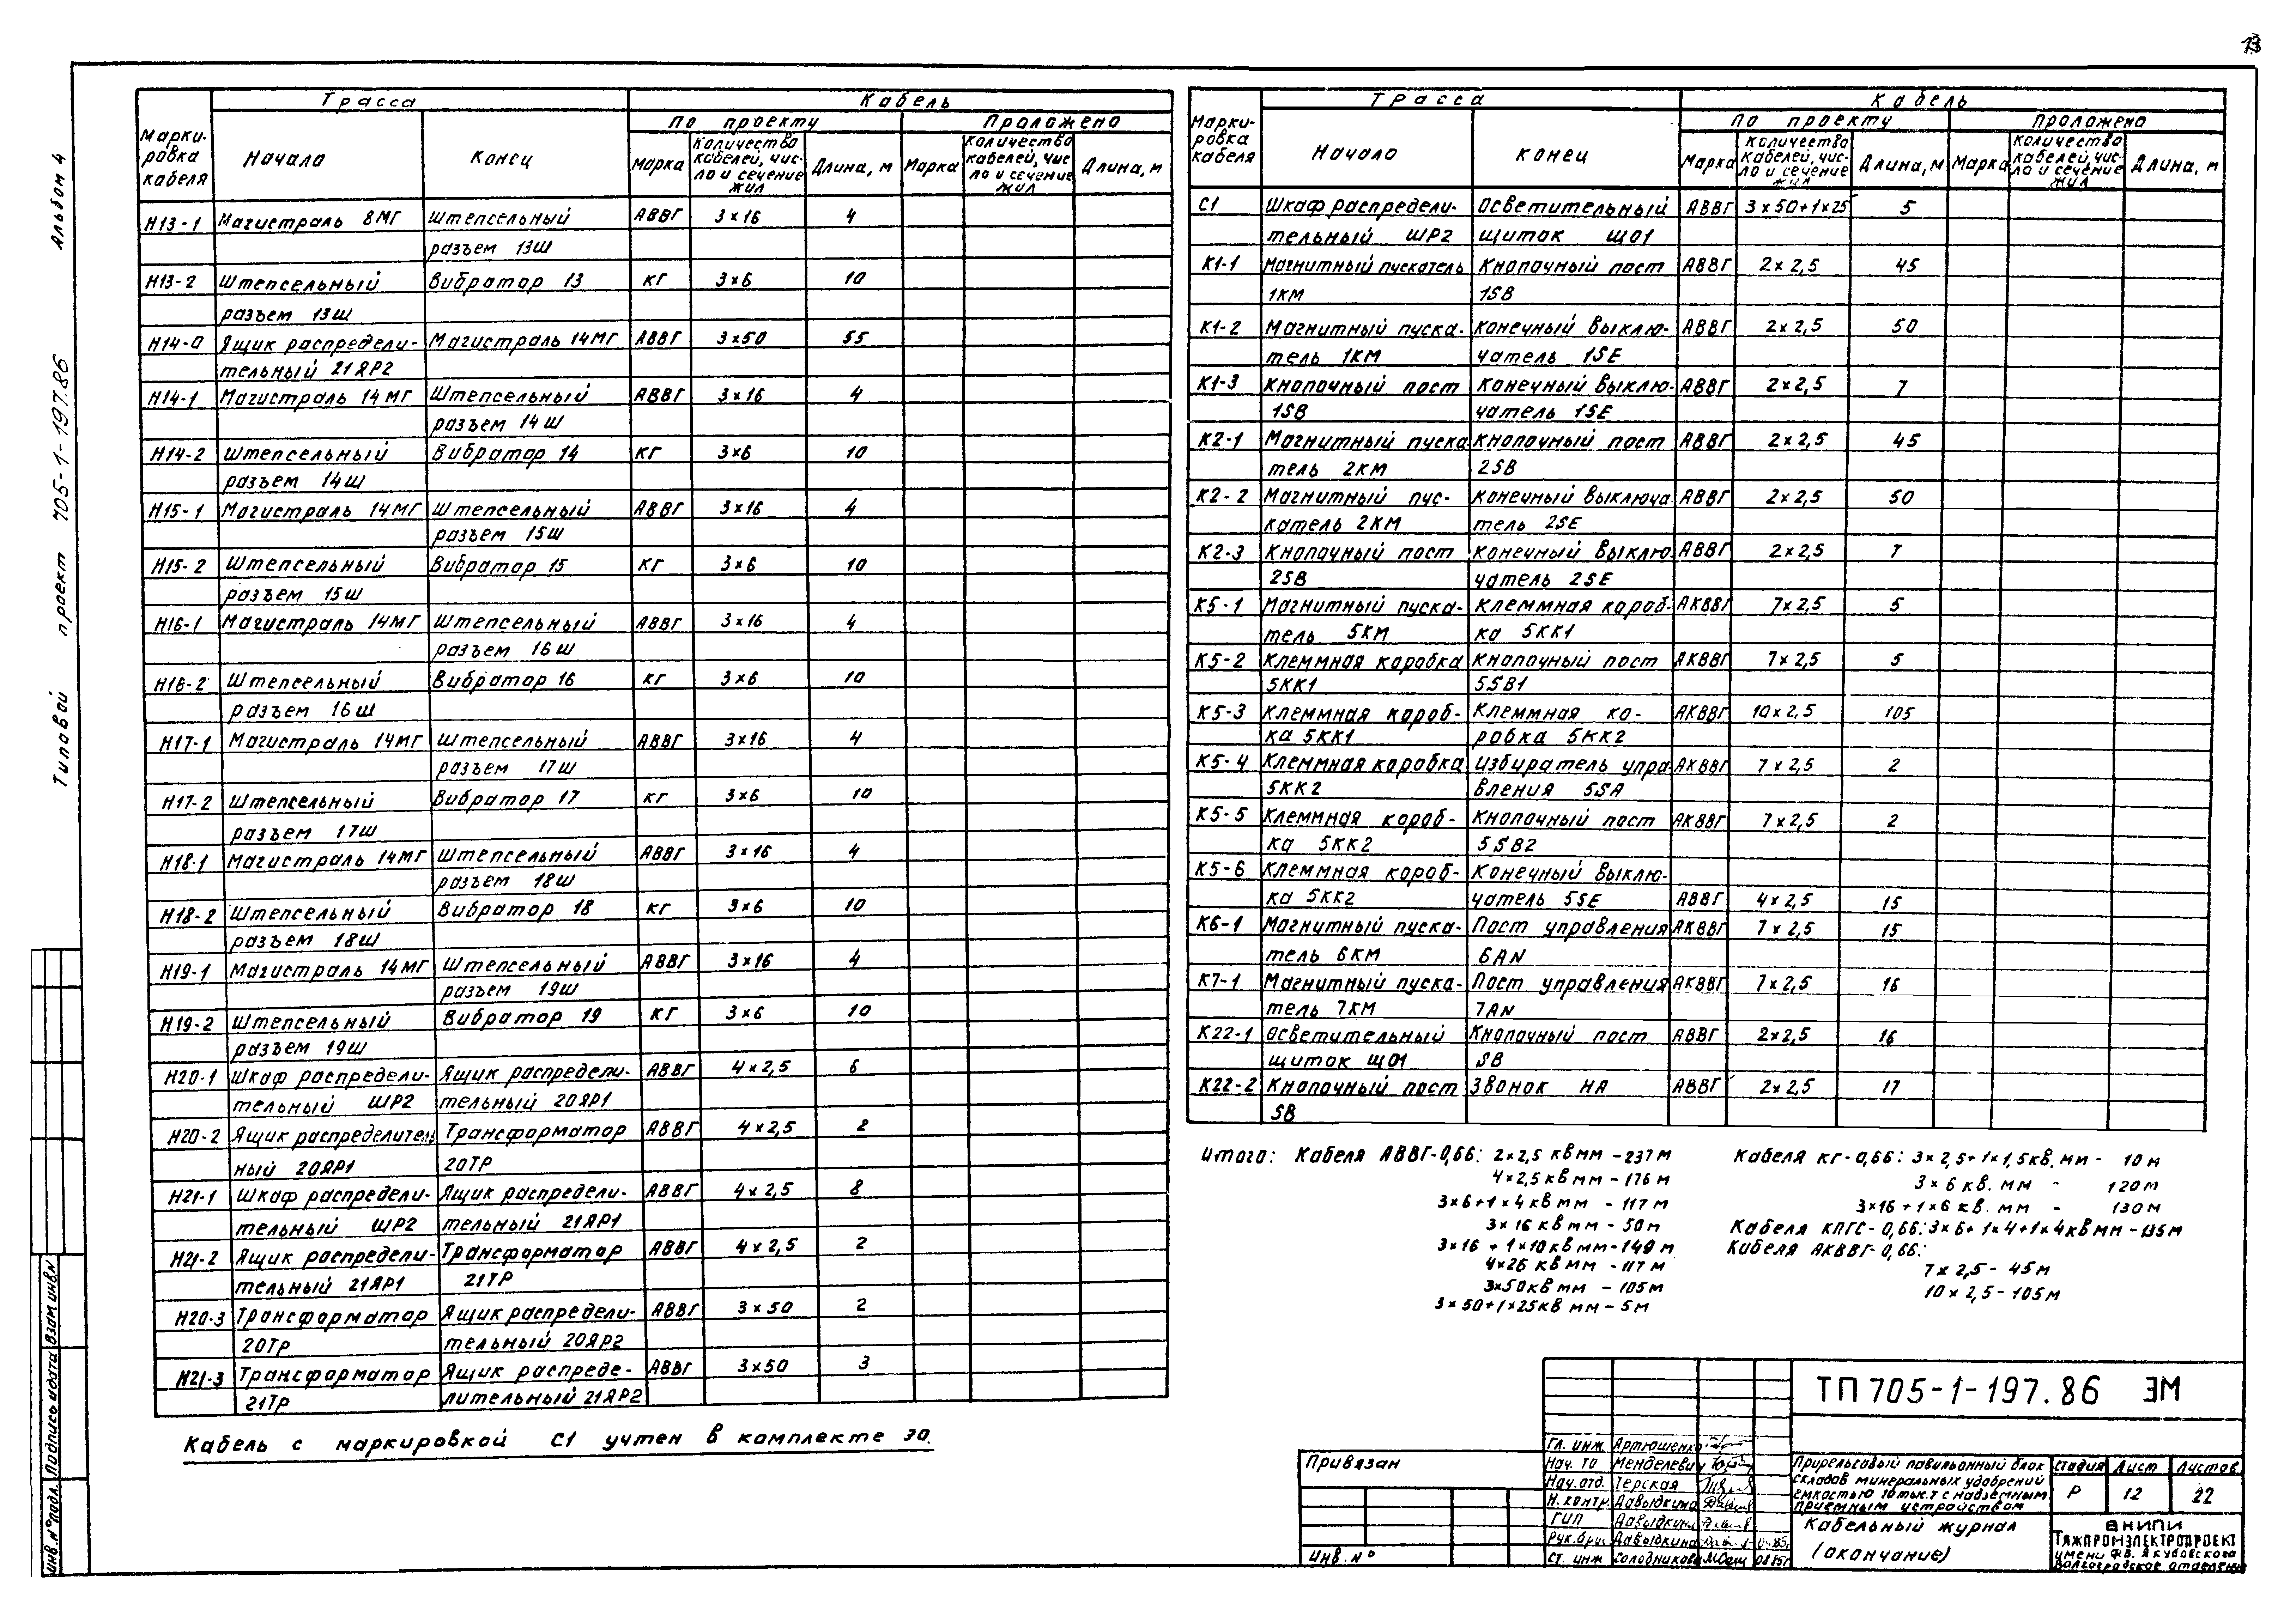 13
Альбом 4
Типовой проект 705-1-197.86
Марки-ровка кабеля | Трасса | Кабель
Начало | Конец | По проекту | Проложено
Марка | Количество кабелей, число и сечение жил | Длина, м | Марка | Количество кабелей, число и сечение жил | Длина, м
Н13-1 Магистраль 8МГ Штепсельный АВВГ 3×16 4
разъем 13Ш
Н13-2 Штепсельный Вибратор 13 КГ 3×6 10
разъем 13Ш
Н14-0 Ящик распредели- Магистраль 14МГ АВВГ 3×50 55
тельный 21ЯР2
Н14-1 Магистраль 14МГ Штепсельный АВВГ 3×16 4
разъем 14Ш
Н14-2 Штепсельный Вибратор 14 КГ 3×6 10
разъем 14Ш
Н15-1 Магистраль 14МГ Штепсельный АВВГ 3×16 4
разъем 15Ш
Н15-2 Штепсельный Вибратор 15 КГ 3×6 10
разъем 15Ш
Н16-1 Магистраль 14МГ Штепсельный АВВГ 3×16 4
разъем 16Ш
Н16-2 Штепсельный Вибратор 16 КГ 3×6 10
разъем 16Ш
Н17-1 Магистраль 14МГ Штепсельный АВВГ 3×16 4
разъем 17Ш
Н17-2 Штепсельный Вибратор 17 КГ 3×6 10
разъем 17Ш
Н18-1 Магистраль 14МГ Штепсельный АВВГ 3×16 4
разъем 18Ш
Н18-2 Штепсельный Вибратор 18 КГ 3×6 10
разъем 18Ш
Н19-1 Магистраль 14МГ Штепсельный АВВГ 3×16 4
разъем 19Ш
Н19-2 Штепсельный Вибратор 19 КГ 3×6 10
разъем 19Ш
Н20-1 Шкаф распредели- Ящик распредели- АВВГ 4×2,5 6
тельный ШР2 тельный 20ЯР1
Н20-2 Ящик распределитель Трансформатор АВВГ 4×2,5 2
ный 20ЯР1 20ТР
Н21-1 Шкаф распредели- Ящик распредели- АВВГ 4×2,5 8
тельный ШР2 тельный 21ЯР1
Н21-2 Ящик распредели- Трансформатор АВВГ 4×2,5 2
тельный 21ЯР1 21ТР
Н20-3 Трансформатор Ящик распредели- АВВГ 3×50 2
20ТР тельный 20ЯР2
Н21-3 Трансформатор Ящик распреде- АВВГ 3×50 3
21ТР лительный 21ЯР2
Кабель с маркировкой С1 учтен в комплекте ЭО.
Марки-ровка кабеля | Трасса | Кабель
Начало | Конец | По проекту | Проложено
Марка | Количество кабелей, число и сечение жил | Длина, м | Марка | Количество кабелей, число и сечение жил | Длина, м
С1 Шкаф распредели- Осветительный АВВГ 3×50+1×25 5
тельный ШР2 щиток ЩО1
К1-1 Магнитный пускатель Кнопочный пост АВВГ 2×2,5 45
1КМ 1SB
К1-2 Магнитный пуска- Конечный выклю- АВВГ 2×2,5 50
тель 1КМ чатель 1SE
К1-3 Кнопочный пост Конечный выклю- АВВГ 2×2,5 7
1SB чатель 1SE
К2-1 Магнитный пуска Кнопочный пост АВВГ 2×2,5 45
тель 2КМ 2SB
К2-2 Магнитный пус- Конечный выключа АВВГ 2×2,5 50
катель 2КМ тель 2SE
К2-3 Кнопочный пост Конечный выклю- АВВГ 2×2,5 7
2SB чатель 2SE
К5-1 Магнитный пуска- Клеммная короб- АКВВГ 7×2,5 5
тель 5КМ ка 5КК1
К5-2 Клеммная коробка Кнопочный пост АКВВГ 7×2,5 5
5КК1 5SB1
К5-3 Клеммная короб- Клеммная ко- АКВВГ 10×2,5 105
ка 5КК1 робка 5КК2
К5-4 Клеммная коробка Избиратель упра АКВВГ 7×2,5 2
5КК2 вления 5SA
К5-5 Клеммная короб- Кнопочный пост АКВВГ 7×2,5 2
ка 5КК2 5SB2
К5-6 Клеммная короб- Конечный выклю-
ка 5КК2 чатель 5SE АВВГ 4×2,5 15
К6-1 Магнитный пуска- Пост управления АКВВГ 7×2,5 15
тель 6КМ 6AN
К7-1 Магнитный пуска- Пост управления АКВВГ 7×2,5 16
тель 7КМ 7AN
К22-1 Осветительный Кнопочный пост АВВГ 2×2,5 16
щиток ЩО1 SB
К22-2 Кнопочный пост Звонок НА АВВГ 2×2,5 17
SB
Итого: Кабеля АВВГ-0,66: 2×2,5 кв мм - 237 м
4×2,5 кв мм - 176 м
3×6+1×4 кв мм - 117 м
3×16 кв мм - 50 м
3×16 + 1×10 кв мм - 149 м
4×26 кв мм - 117 м
3×50 кв мм - 105 м
3×50+1×25 кв мм - 5 м
Кабеля КГ-0,66: 3×2,5+1×1,5 кв. мм - 10 м
3×6 кв. мм - 120 м
3×16 + 1×6 кв. мм - 130 м
Кабеля КПГС-0,66: 3×6+1×4+1×4 кв мм - 135 м
Кабеля АКВВГ-0,66:
7×2,5 - 45 м
10×2,5 - 105 м
ТП 705-1-197.86 ЭМ
Привязан
Инв. №
Гл. инж. Артюшенко
Нач. ТО Менделевич
Нач. отд. Терская
Н. контр. Давыдкина
ГИП Давыдкина
Рук. бриг. Давыдкина
Ст. инж Солодникова 08.85г
Прирельсовый павильонный блок
складов минеральных удобрений
емкостью 10 тыс. т с надземным
приемным устройством
Стадия Лист Листов
Р 12 22
Кабельный журнал
(окончание)
ВНИПИ
Тяжпромэлектропроект
имени Ф.Б. Якубовского
Волгоградское отделение
Инв. № подл. Подпись и дата Взам инв №